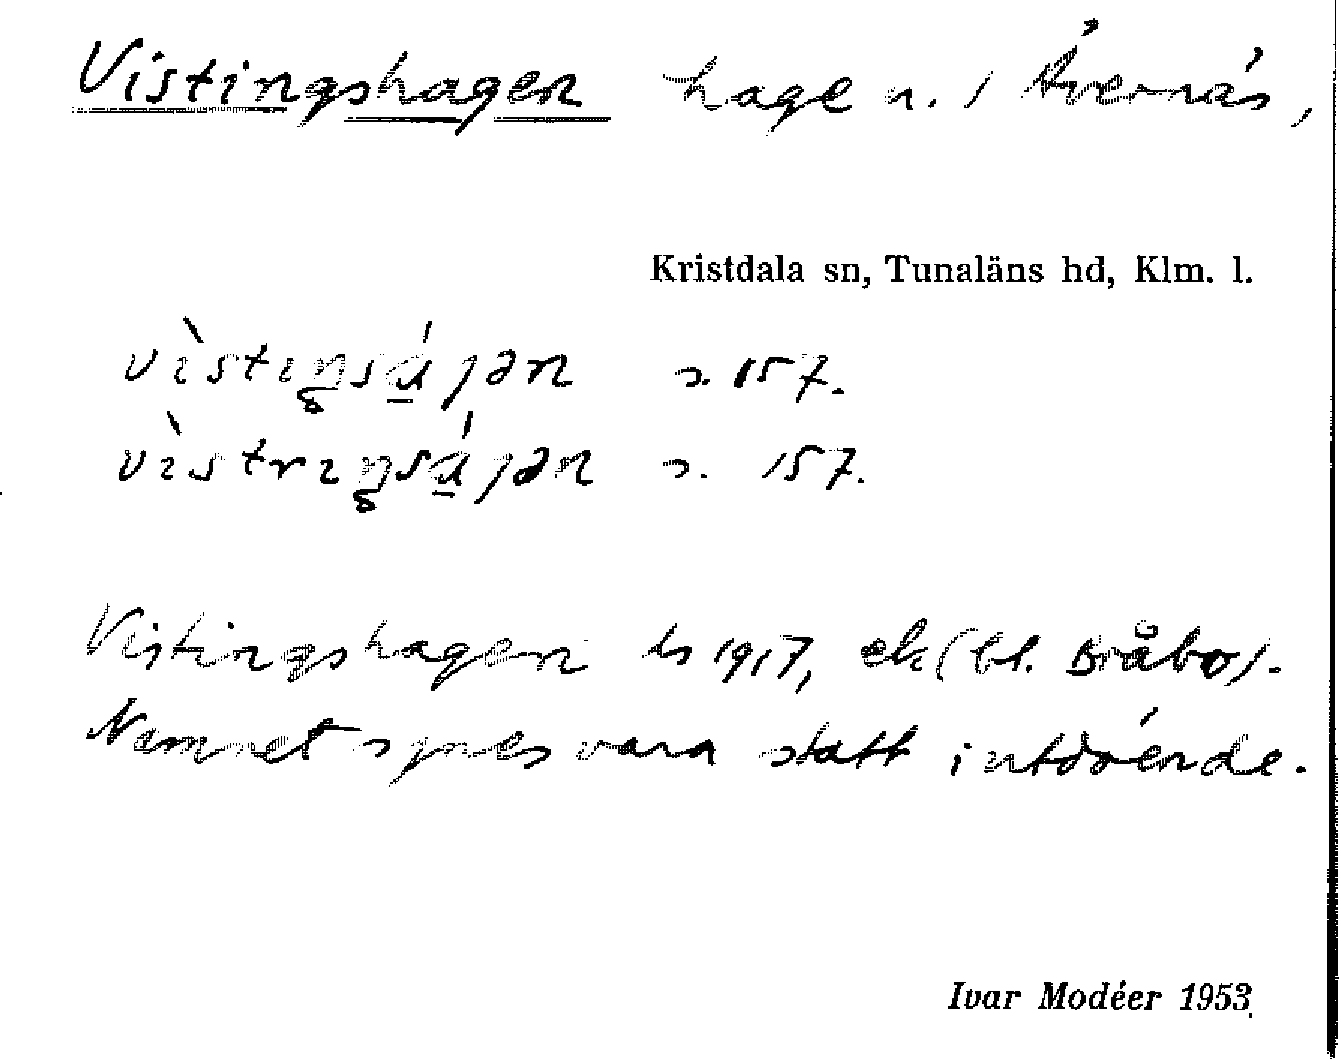 Vistingshagen hage n. i Århult
Kristdala sn, Tunaläns hd, Klm. l.
vìstiŋsá̱jən s. 157.
vìstriŋsá̱jən s. 157.
Vistingshagen ls 1917, ek (bl. Bråbo).
Namnet synes vara statt i utdöende.
Ivar Modéer 1953